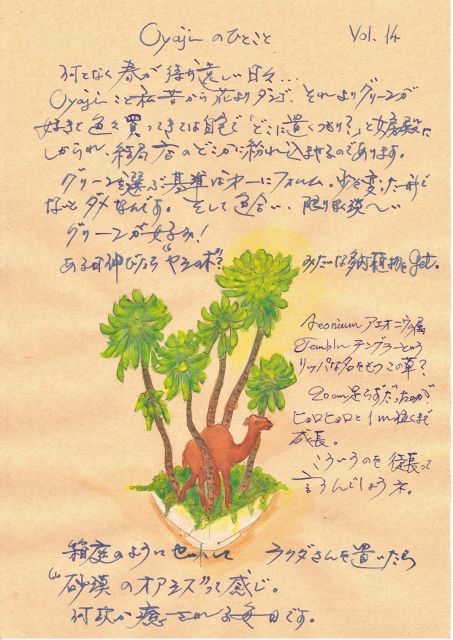 Oyajiのひとこと Vol. 14
何となく春が待ち遠しい日々…
Oyajiこと私昔から花よりダンゴ、それよりグリーンが
好きで色々買ってきては自宅で「どこに置くつもり?」と女房殿に
しかられ、結局店のどこかに紛れ込ませるのであります。
グリーンを選ぶ基準は第一にフォルム。少々変った形で
ないとダメなんです。そして色合い、限りなく淡〜い
グリーンが好み!
ある日伸びたら“ヤシの木”? みたいな多肉植物をget.
Aeonium アエオニウム属
Temblor テンブラーという
リッパな名をもつこの草?
20cm足らずだったのが
ヒョロヒョロと1m近くまで
成長。
こういうのを徒長って
言うんでしょうネ。
箱庭のように ラクダさんを置いたら
“砂漠のオアシス”って感じ。
何故か癒される毎日です。